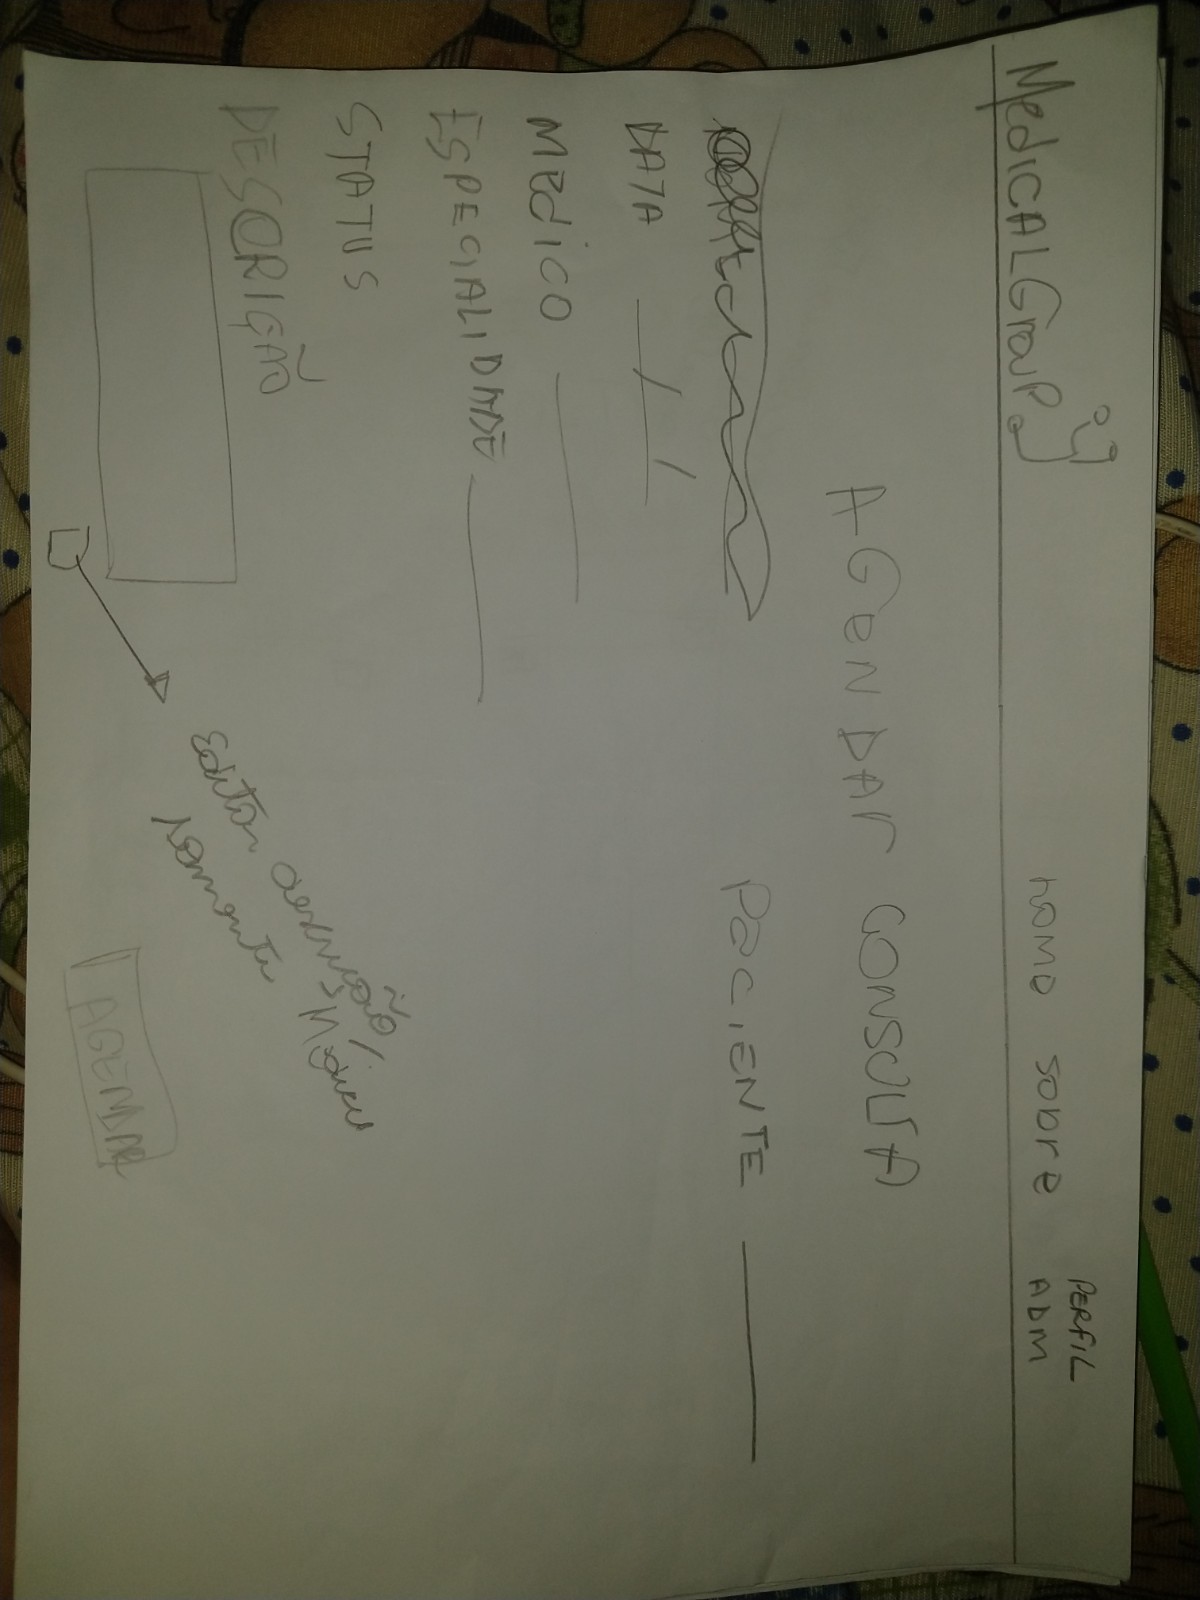 MedicALGrouP
home sobre
PERFIL
ADM
AGENDAr CONSULTA
PaCIENTE
DATA / /
MEdICO
ESPECIALIDADE
STATUS
DESCRIÇÃO
Editar descrição/
somente Médico
AGENDAR